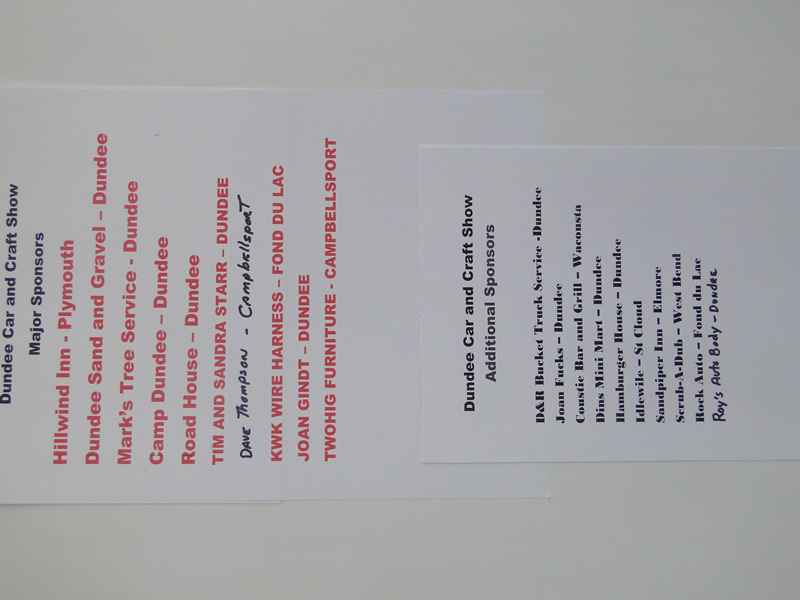 Dundee Car and Craft Show
Major Sponsors
Hillwind Inn - Plymouth
Dundee Sand and Gravel – Dundee
Mark's Tree Service - Dundee
Camp Dundee – Dundee
Road House – Dundee
TIM AND SANDRA STARR – DUNDEE
DAVE Thompson - Campbellsport
KWK WIRE HARNESS – FOND DU LAC
JOAN GINDT – DUNDEE
TWOHIG FURNITURE - CAMPBELLSPORT
Dundee Car and Craft Show
Additional Sponsors
D&R Bucket Truck Service -Dundee
Joan Fucks – Dundee
Coustie Bar and Grill – Wacousta
Dins Mini Mart – Dundee
Hamburger House – Dundee
Idlewile – St Cloud
Sandpiper Inn – Elmore
Scrub-A-Dub – West Bend
Rock Auto – Fond du Lac
Roy's Auto Body - Dundee